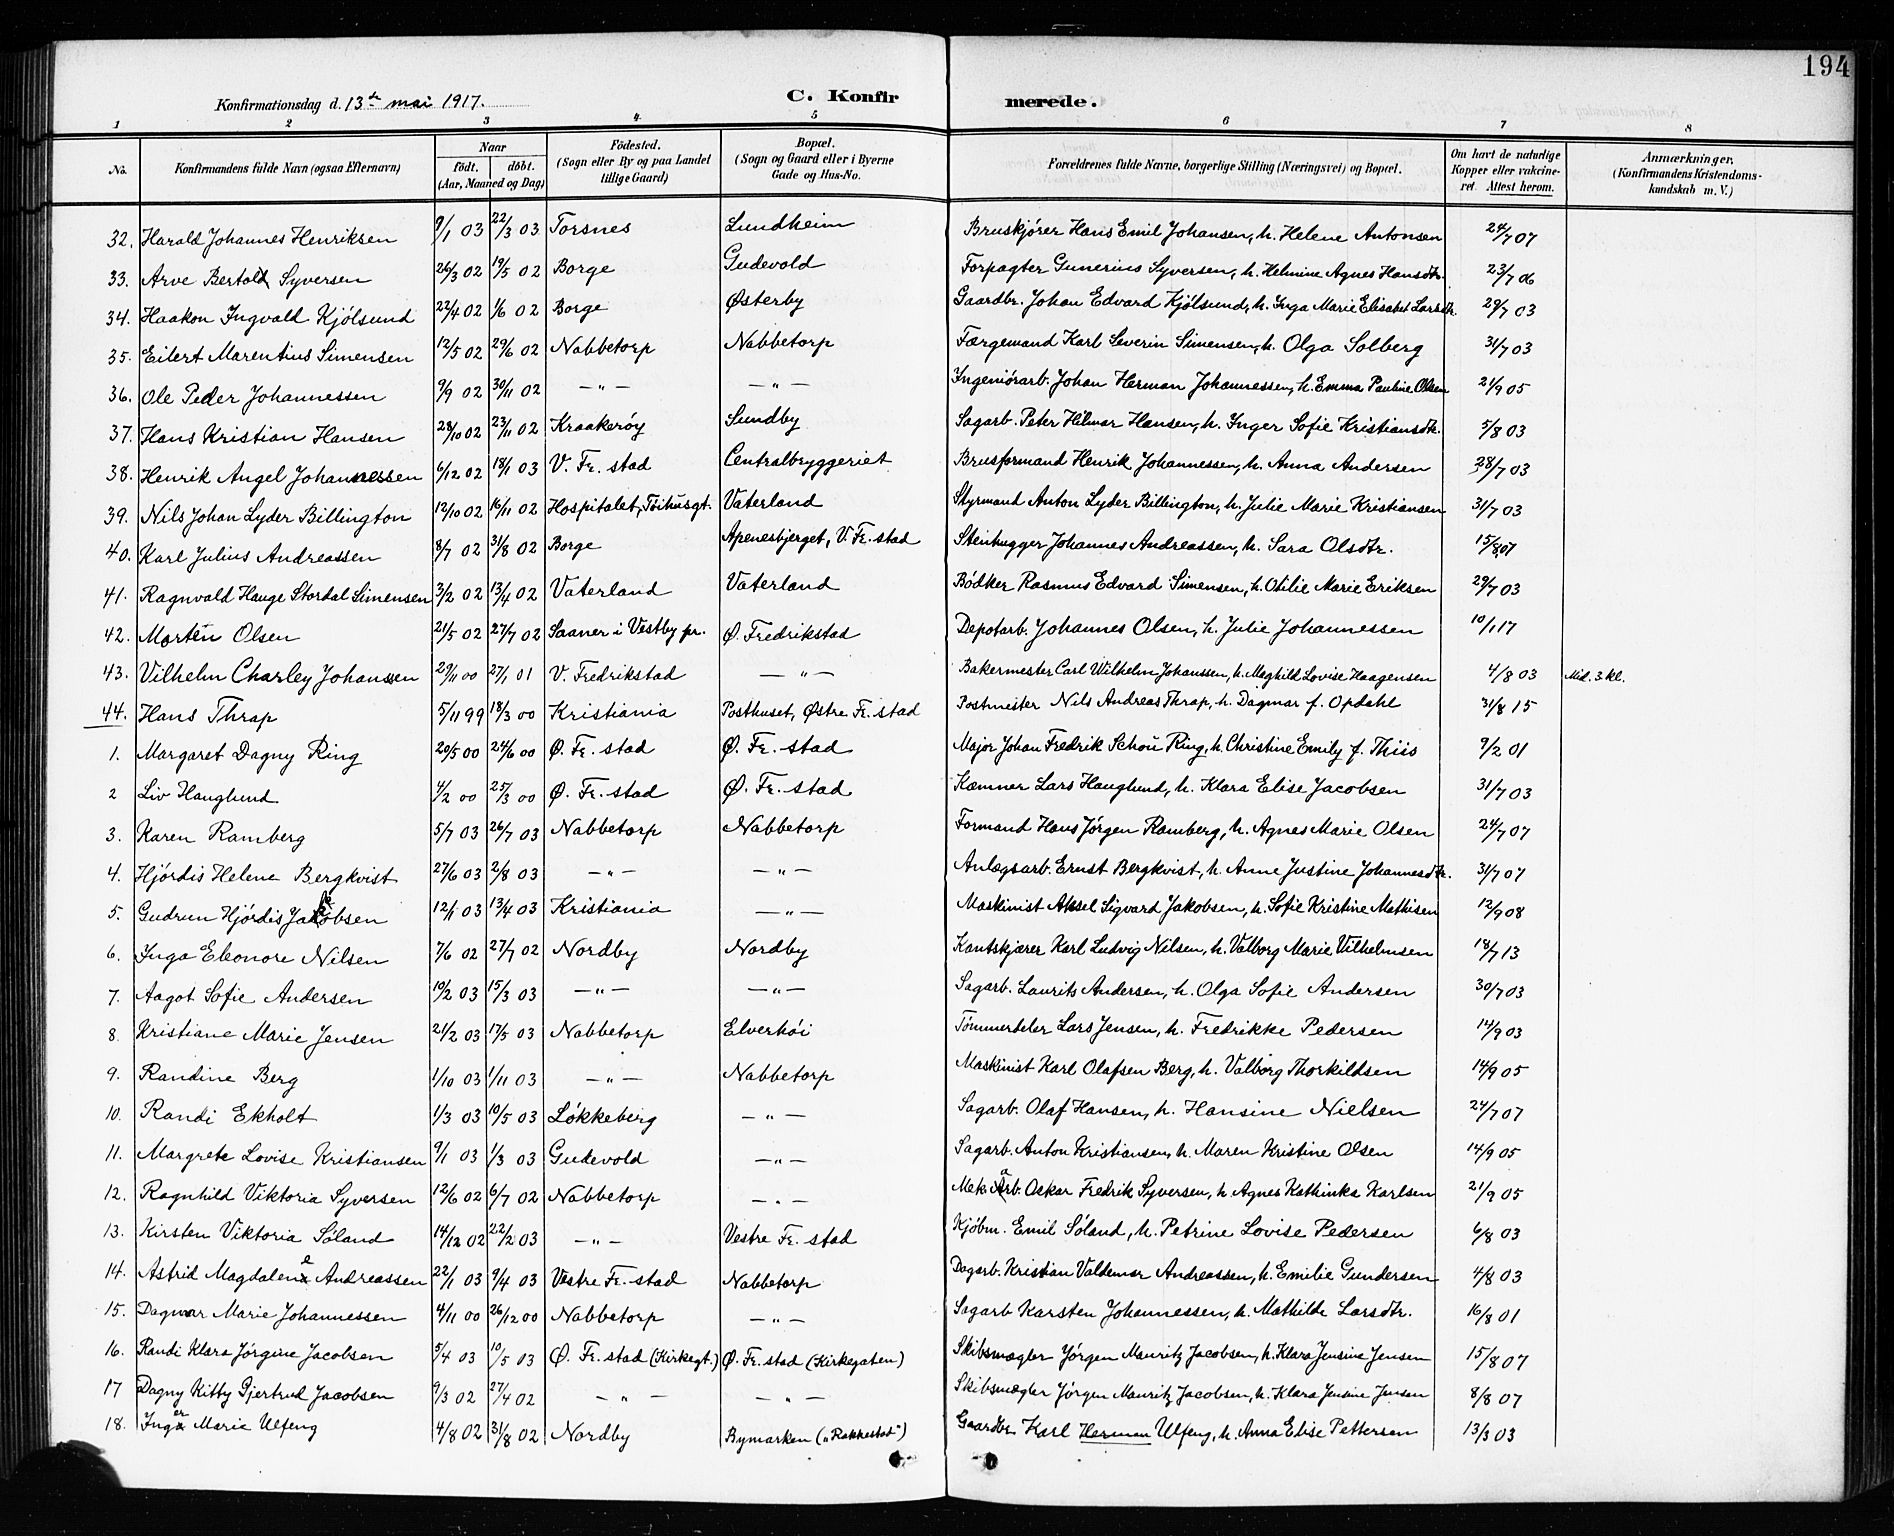 194
Konfirmationsdag d. 13de mai 1917. C. Konfirmerede.
1 2 3 4 5 6 7 8
No. Konfirmandens fulde Navn (ogsaa Efternavn) Naar født. døbt. (Aar, Maaned og Dag) Fødested. (Sogn eller By og paa Landet tillige Gaard) Bopæl. (Sogn og Gaard eller i Byerne Gade og Hus-No. Forældrenes fulde Navne, borgerlige Stilling (Næringsvei) og Bopæl. Om havt de naturlige Kopper eller vaccineret. Attest herom. Anmærkninger. (Konfirmandens Kristendomskundskab m. V.)
32. Harald Johannes Henriksen 9/1 03 22/3 03 Torsnes Lundheim Bruskjører Hans Emil Johansen, h. Helene Antonsen 24/7 07
33. Arve Bertold Syversen 26/3 02 19/5 02 Borge Gudevold Forpagter Gunerius Syversen, h. Helmine Agnes Hansdtr. 23/7 06
34. Haakon Ingvald Kjölsund 22/4 02 1/6 02 Borge Østerby Gaardbr. Johan Edvard Kjölsund, h. Inga Marie Elisabet Larsdtr. 29/7 03
35. Eilert Marentius Simensen 12/5 02 29/6 02 Nabbetorp Nabbetorp Færgemand Karl Severin Simensen, h. Olga Solberg 31/7 03
36. Ole Peder Johannessen 9/9 02 30/11 02 — " — — " — Ingeniörarb. Johan Herman Johannessen, h. Emma Pauline Olsen 21/9 05
37. Hans Kristian Hansen 28/10 02 23/11 02 Kraakeröy Sundby Sagarb. Peter Hilmar Hansen, h. Inger Sofie Kristiansdtr. 5/8 03
38. Henrik Angel Johannessen 6/12 02 18/1 03 V. Fr. stad Centralbryggeriet Brusformand Henrik Johannessen, h. Anna Andersen 28/7 03
39. Nils Johan Lyder Billington 12/10 02 16/11 02 Hospitalet, Töihusgt. Vaterland Styrmand Anton Lyder Billington, h. Julie Marie Kristiansen 31/7 03
40. Karl Julius Andreassen 8/7 02 31/8 02 Borge Apenesbjerget, V. Fr. stad Stenhugger Johannes Andreassen, h. Sara Olsdtr. 15/8 07
41. Ragnvald Hauge Stordal Simensen 3/2 02 13/4 02 Vaterland Vaterland Bödker Rasmus Edvard Simensen, h. Otilie Marie Eriksen 29/7 03
42. Morten Olsen 21/5 02 27/7 02 Saaner i Vestby pr. Ø. Fredrikstad Depotarb. Johannes Olsen, h. Julie Johannessen 10/1 17
43. Vilhelm Charley Johanssen 29/11 00 27/1 01 V. Fredrikstad — " — Bakermester Carl Wilhelm Johanssen, h. Maghild Lovise Haagensen 4/8 03 Mid. 3 kl.
44. Hans Thrap 5/11 99 18/3 00 Kristiania Posthuset, Østre Fr. stad Postmester Nils Andreas Thrap, h. Dagmar f. Opdahl 31/8 15
1. Margaret Dagny Ring 20/5 00 24/6 00 Ø. Fr. stad Ø. Fr. stad Major Johan Fredrik Schou Ring, h. Christine Emily f. Thiis 9/2 01
2 Liv Hauglund 4/2 00 25/3 00 Ø. Fr. stad Ø. Fr. stad Kæmner Lars Hauglund, h. Klara Elise Jacobsen 31/7 03
3. Karen Ramberg 5/7 03 26/7 03 Nabbetorp Nabbetorp Formand Hans Jörgen Ramberg, h. Agnes Marie Olsen 24/7 07
4. Hjördis Helene Bergkvist 27/6 03 2/8 03 — " — — " — Anlægsarb. Ernst Bergkvist, h. Anne Justine Johannesdtr. 31/7 07
5. Gudrun Hjördis Jakobsen 12/1 03 13/4 03 Kristiania — " — Maskinist Aksel Sigvard Jakobsen, h. Sofie Kristine Mathisen 12/9 08
6. Inga Eleonore Nilsen 7/6 02 27/7 02 Nordby Nordby Kantskjærer Karl Ludvig Nilsen, h. Valborg Marie Vilhelmsen 18/7 13
7. Aagot Sofie Andersen 10/2 03 15/3 03 — " — — " — Sagarb. Laurits Andersen, h. Olga Sofie Andersen 30/7 03
8. Kristiane Marie Jensen 21/2 03 17/5 03 Nabbetorp Elverhöi Tömmerdeler Lars Jensen, h. Fredrikke Pedersen 14/9 03
9. Randine Berg 1/10 03 1/11 03 — " — Nabbetorp Maskinist Karl Olafsen Berg, h. Valborg Thorkildsen 14/9 05
10. Randi Ekholt 1/3 03 10/5 03 Lökkeberg — " — Sagarb. Olaf Hansen, h. Hansine Nielsen 24/7 07
11. Margrete Lovise Kristiansen 9/1 03 1/3 03 Gudevold — " — Sagarb. Anton Kristiansen, h. Maren Kristine Olsen 14/9 05
12. Ragnhild Viktoria Syversen 12/6 02 6/7 02 Nabbetorp — " — Mek. Arb. Oskar Fredrik Syversen, h. Agnes Kathinka Karlsen 21/9 05
13. Kirsten Viktoria Söland 14/12 02 22/2 03 — " — Vestre Fr. stad Kjöbm. Emil Söland, h. Petrine Lovise Pedersen 6/8 03
14. Astrid Magdalene Andreassen 22/1 03 9/4 03 Vestre Fr. stad Nabbetorp Dagarb. Kristian Valdemar Andreassen, h. Emilie Gundersen 4/8 03
15. Dagmar Marie Johannessen 4/11 00 26/12 00 Nabbetorp — " — Sagarb. Karsten Johannessen, h. Mathilde Larsdtr. 16/8 01
16. Randi Klara Jörgine Jacobsen 5/4 03 10/5 03 Ø. Fr. stad (Kirkegt.) Ø. Fr. stad (Kirkegaten) Skibsmægler Jörgen Mauritz Jacobsen, h. Klara Jensine Jensen 15/8 07
17 Dagny Kitty Gjertrud Jacobsen 9/3 02 27/4 02 — " — — " — Skibsmægler Jörgen Mauritz Jacobsen, h. Klara Jensine Jensen 8/8 07
18. Inger Marie Ulfeng 4/8 02 31/8 02 Nordby Bymarken („Rakkestad") Gaardbr. Karl Herman Ulfeng, h. Anna Elise Pettersen 13/3 03